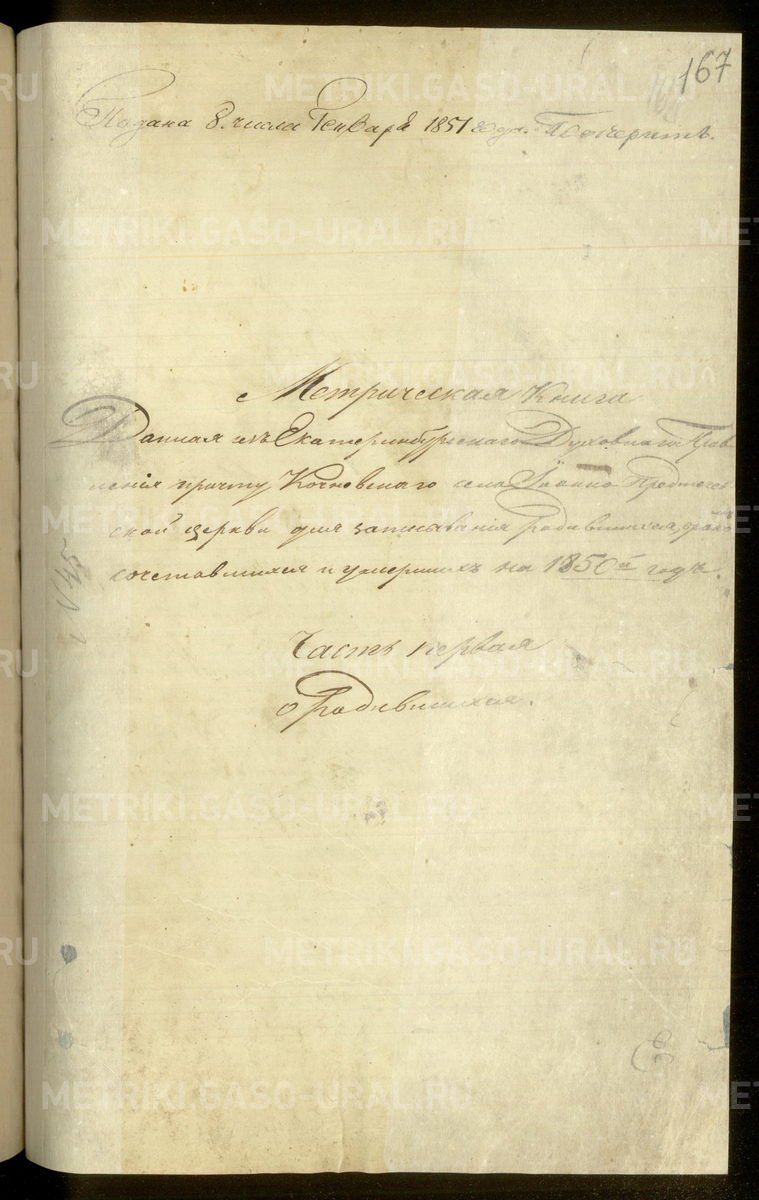 167
Подана 8. числа Генваря 1851 года.
Метрическая Книга
Данная изъ Екатеринбургскаго Духовнаго Прав
ленія причту Кочневскаго села Іоанно Предтечен
ской церкви для записыванія родившихся, брако
сочетавшихся и умершихъ на 1850й годъ.
Часть первая
о Родившихся.
METRIKI.GASO-URAL.RU